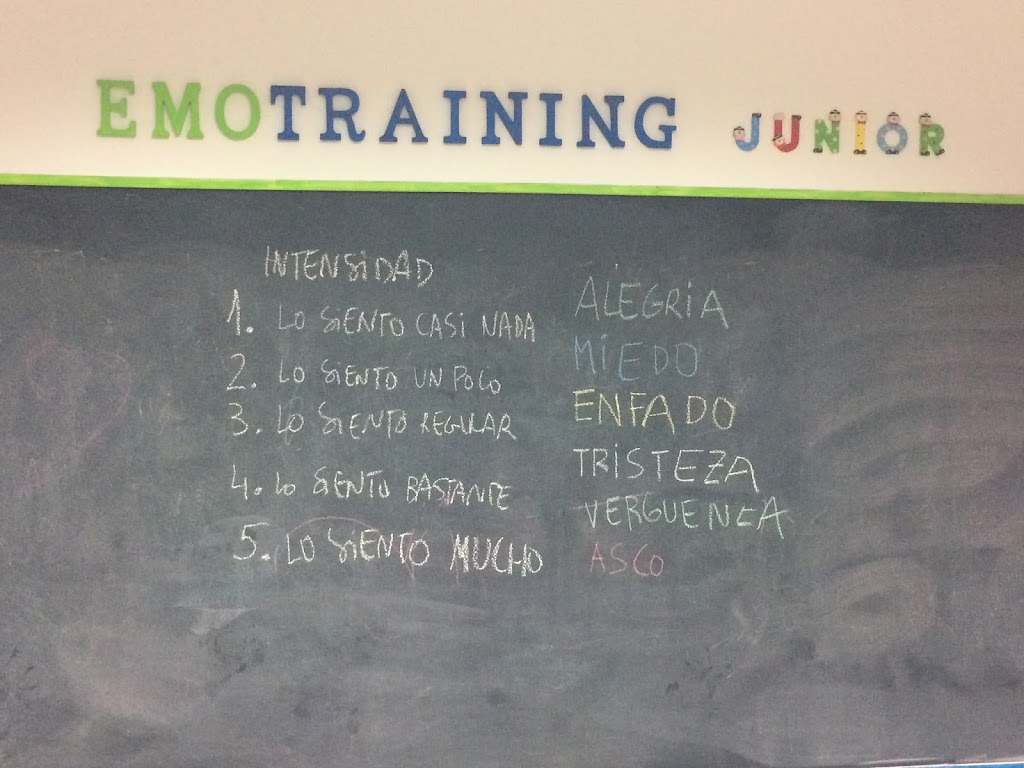 EMOTRAINING JUNIOR
INTENSIDAD
1. LO SIENTO CASI NADA
2. LO SIENTO UN POCO
3. LO SIENTO REGULAR
4. LO SIENTO BASTANTE
5. LO SIENTO MUCHO
ALEGRIA
MIEDO
ENFADO
TRISTEZA
VERGUENZA
ASCO